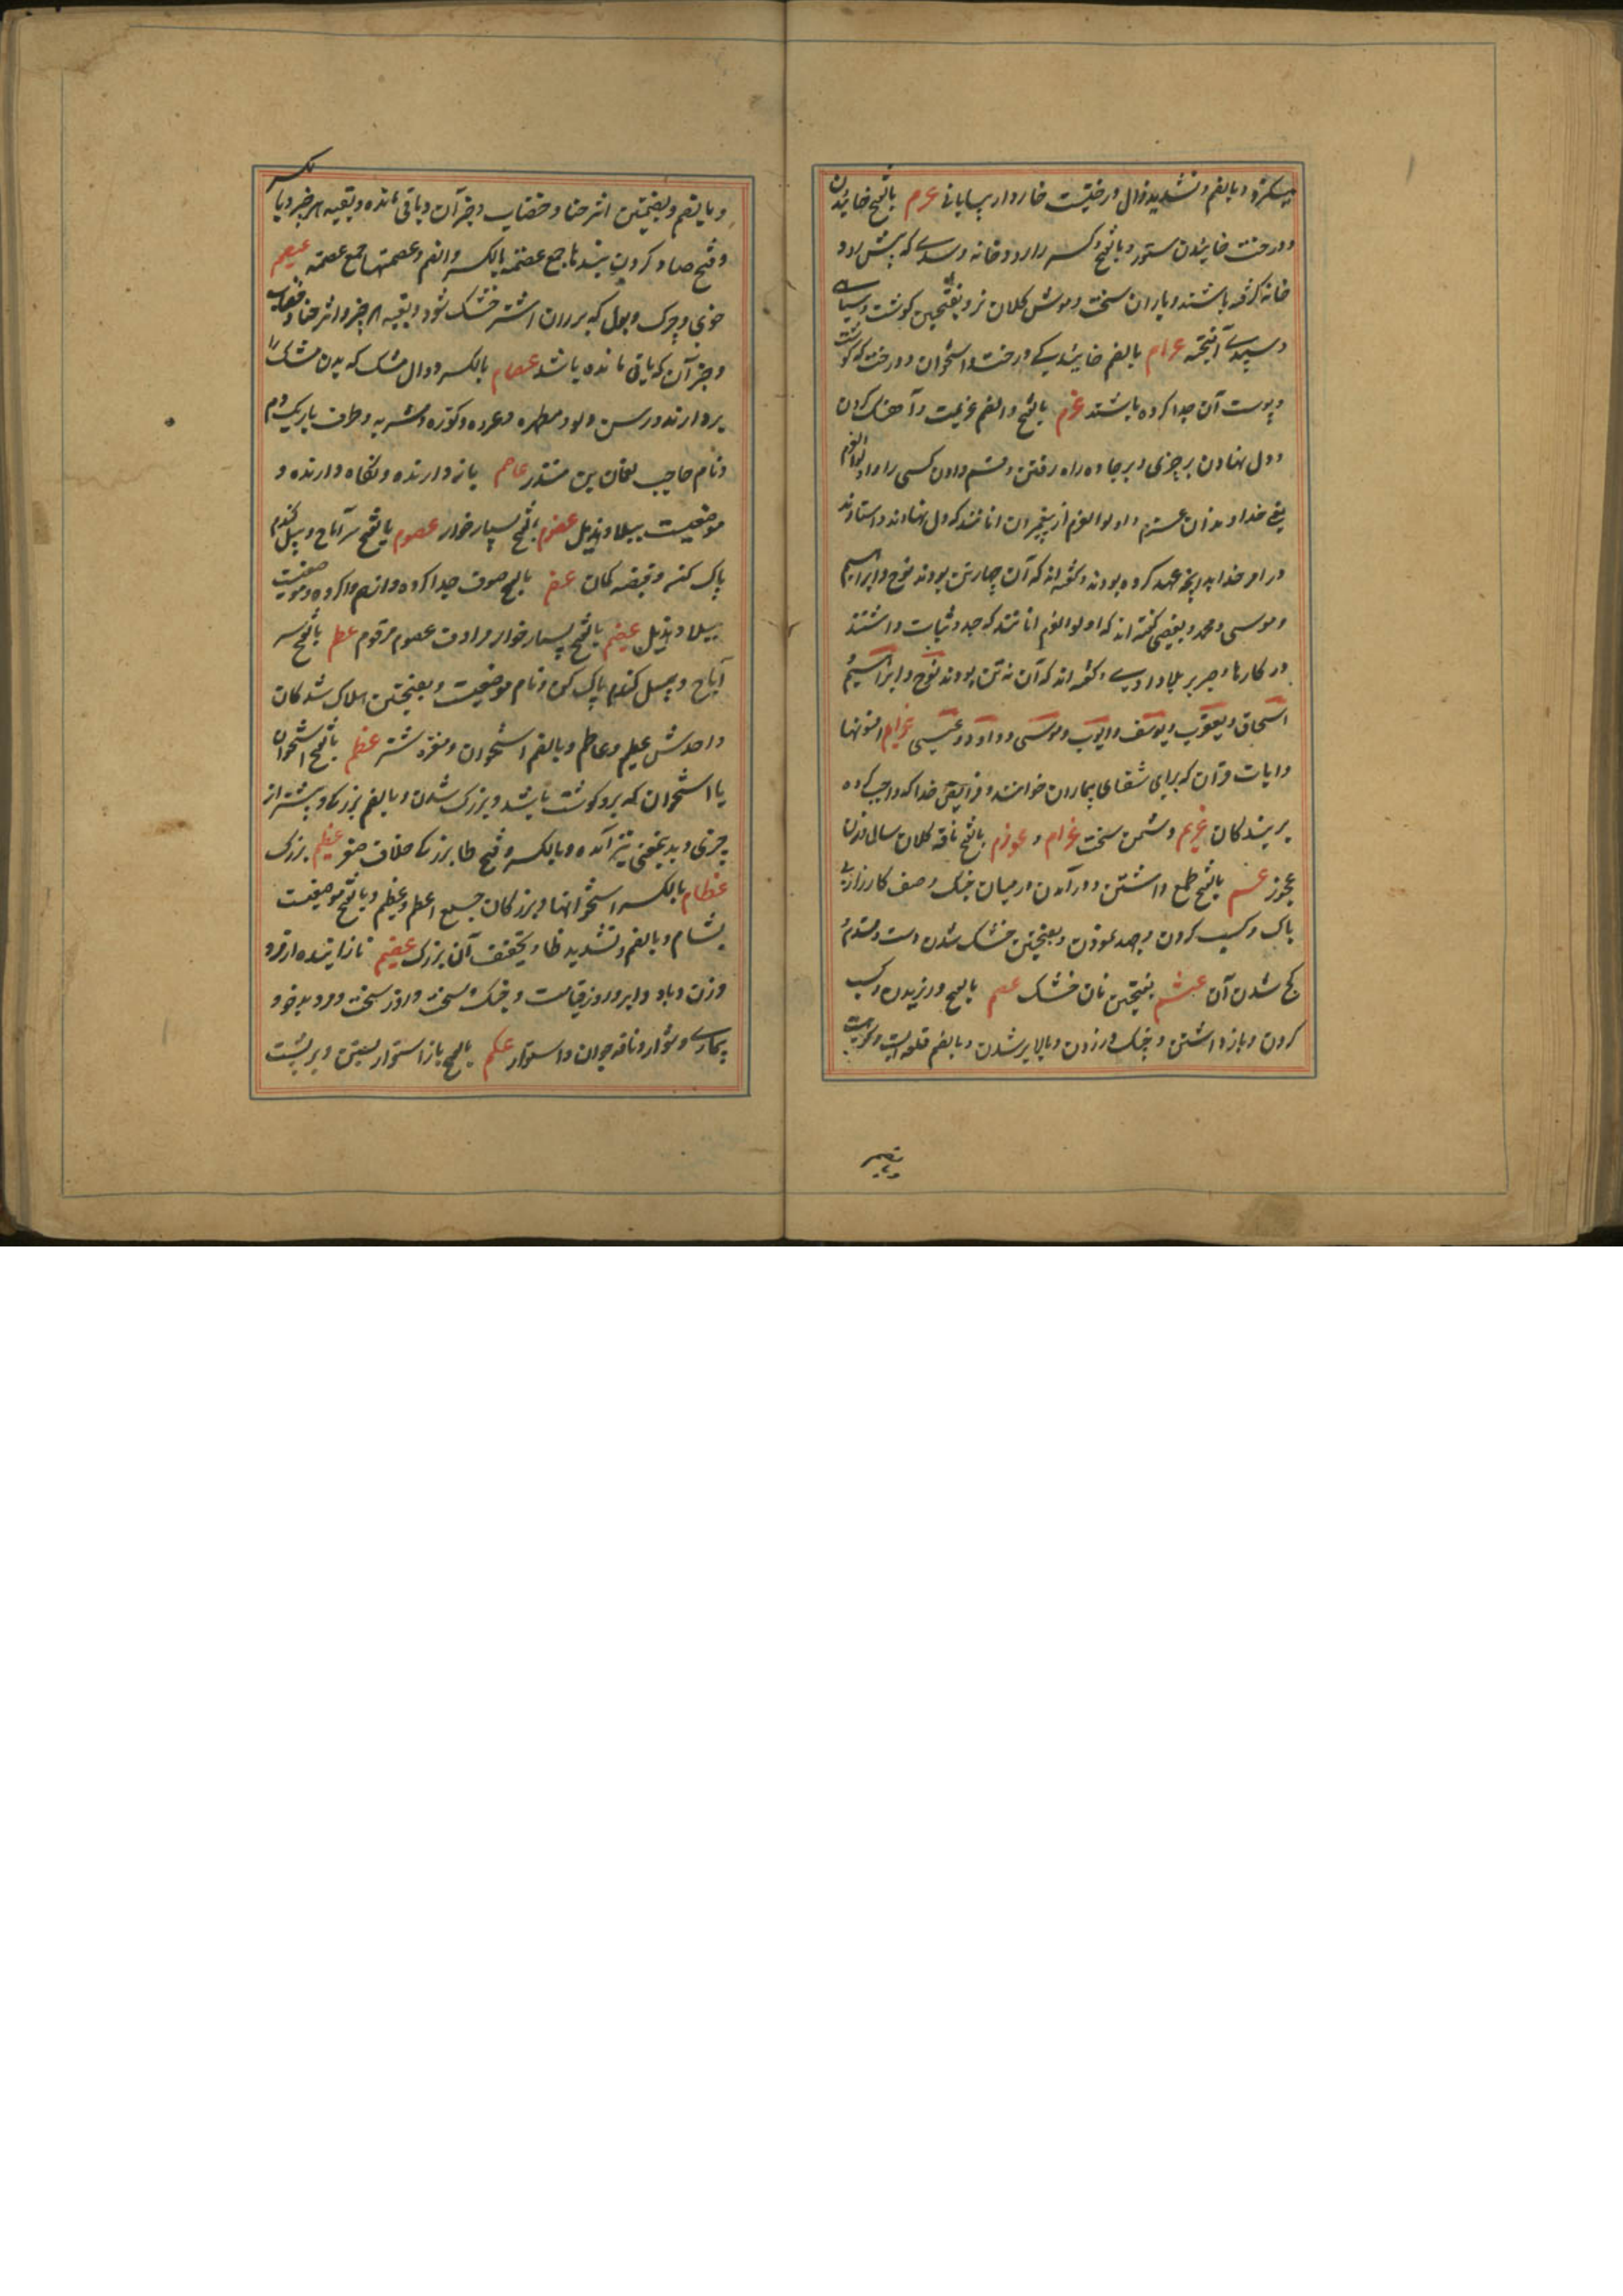 میگرد و بالضم و تشدید ذال درختیست خاردار بیابانی عرم بالفتح خائیدن
و درخت خائیدن ستور و بالفتح و کسر را رود خانه و سدی که پیش رود
خانه گرفته باشند و باران سخت و موش کلان نر و بفتحتین گوشت و سیاهی
و سپیدی آمیخته عرام بالضم خائیدگی درخت و استخوان و درخت که گوشت
و پوست آن جدا کرده باشند عزم بالفتح و الضم عزیمت و آهنگ کردن
و دل نهادن بر چیزی و بر جاده راه رفتن و قسم دادن کسی را و اولوالعزم
یعنی خداوندان عزم و اولوالعزم از پیغمبران آنانند که دل نهادند و استادند
در امر خدا به آنچه عهد کرده بودند و گفته اند که آن چهار تن بودند نوح و ابراهیم
و موسی و محمد و بعضی گفته اند که اولوالعزم آنانند که جد و ثبات داشتند
در کارها و صبر بر بلا و گفته اند که آن نه تن بودند نوح و ابراهیم
اسحاق و یعقوب و یوسف و ایوب و موسی و داود و عیسی عزایم افسونها
و آیات قرآن که برای شفای بیماران خوانند و فرایض خدا که واجب کرده
بر بندگان عزیم دشمن سخت عزام و عوزم بالفتح ناقه کلان سال و زن
عجوز عسم بالفتح طمع داشتن و در آمدن در میان جنگ و صف کارزار بی
باک و کسب کردن و جهد نمودن و بفتحتین خشک شدن دست و قدم و
کج شدن آن عشم بفتحتین نان خشک عصم بالفتح ورزیدن و کسب
کردن و باز داشتن و چنگ در زدن و بالا بر شدن و بالضم قلعه ایست و کوهیست
و بالضم و بضمتین اثر حنا و خضاب و جز آن و باقی مانده و بقیه هر چیز و با
لکسر
و فتح صاد گردن بندها جمع عصمة بالکسر و الضم و عصمتها جمع عصمة عصیم
خوی و چرک و بول که بر ران اشتر خشک شود و بقیه هر چیز و اثر حنا و خضاب
و جز آن که باقی مانده باشد عصام بالکسر دوال مشک که بدن مشک را
بردارند و رسن دلو و مطهره و عروه و کوزه و مشربه و طرف باریک دم
و نام حاجب نعمان بن منذر عاصم باز دارنده و نگاه دارنده و
موضعیست ببلاد هذیل عضوم بالفتح بسیار خوار عصوم بالفتح سر آماج و بیل گندم
پاک کن و قبضه کمان عضم بالفتح صوف جدا کرده و از هم وا کرده و موضعیست
ببلاد هذیل عیضم بالفتح بسیار خوار مرادف عصوم مرقوم عظم بالفتح سر
آماج و بیل گندم پاک کن و نام موضعیست و بضمتین هلاک شدگان
واحدش عظیم و عاظم و بالضم استخوان و مغز شتر عظم بالفتح استخوان
یا استخوان که برو گوشت باشد و بزرگ شدن و بالضم بزرگی و بیشتر از
چیزی و بدین معنی نیز آمده و بالکسر و فتح ظا بزرگی خلاف صغر عظیم بزرگ
عظام بالکسر استخوانها و بزرگان جمع اعظم و عظیم و بالفتح موضعیست
بشام و بالضم و تشدید ظا و تخفیف آن بزرگ عقیم نازاینده از مرد
و زن و باد و ابر و روز قیامت و جنگ سخت و روز سخت و مرد بدخو و
بیماری دشوار و ناقه جوان و استوار عکم بالفتح باز استوار بستن و بر پشت
بضم و با